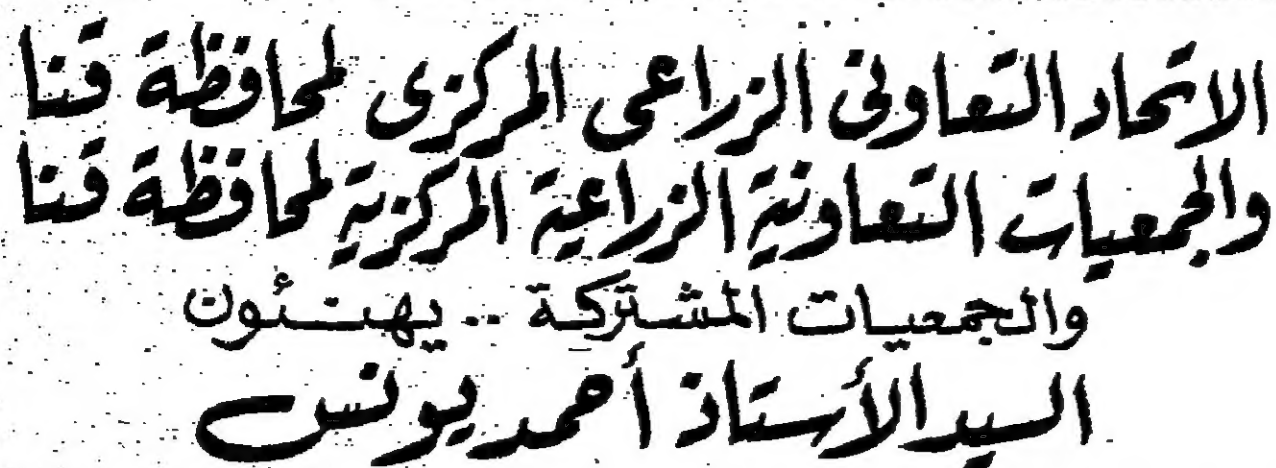 الاتحاد التعاونى الزراعى المركزى لمحافظة قنا
والجمعيات التعاونية الزراعية المركزية لمحافظة قنا
والجمعيات المشتركة .. يهنئون
السيد الأستاذ أحمد يونس